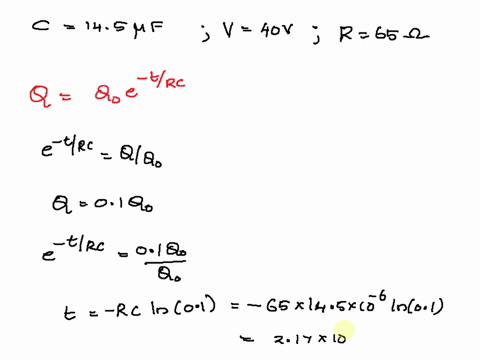 C = 14.5 μF ; V = 40V ; R = 65 Ω
Q = Q₀ e^{-t/RC}
e^{-t/RC} = Q/Q₀
Q = 0.1 Q₀
e^{-t/RC} = 0.1Q₀/Q₀
t = -RC ln(0.1) = -65 × 14.5×10^{-6} ln(0.1)
= 2.17 × 10